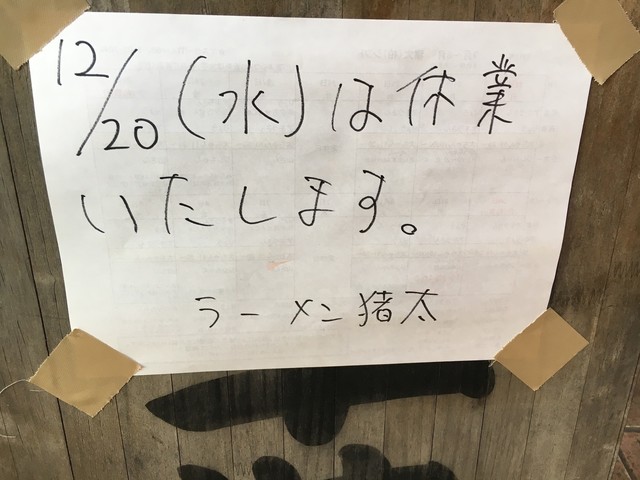 12/20(水)は休業
いたします。
ラーメン猪太